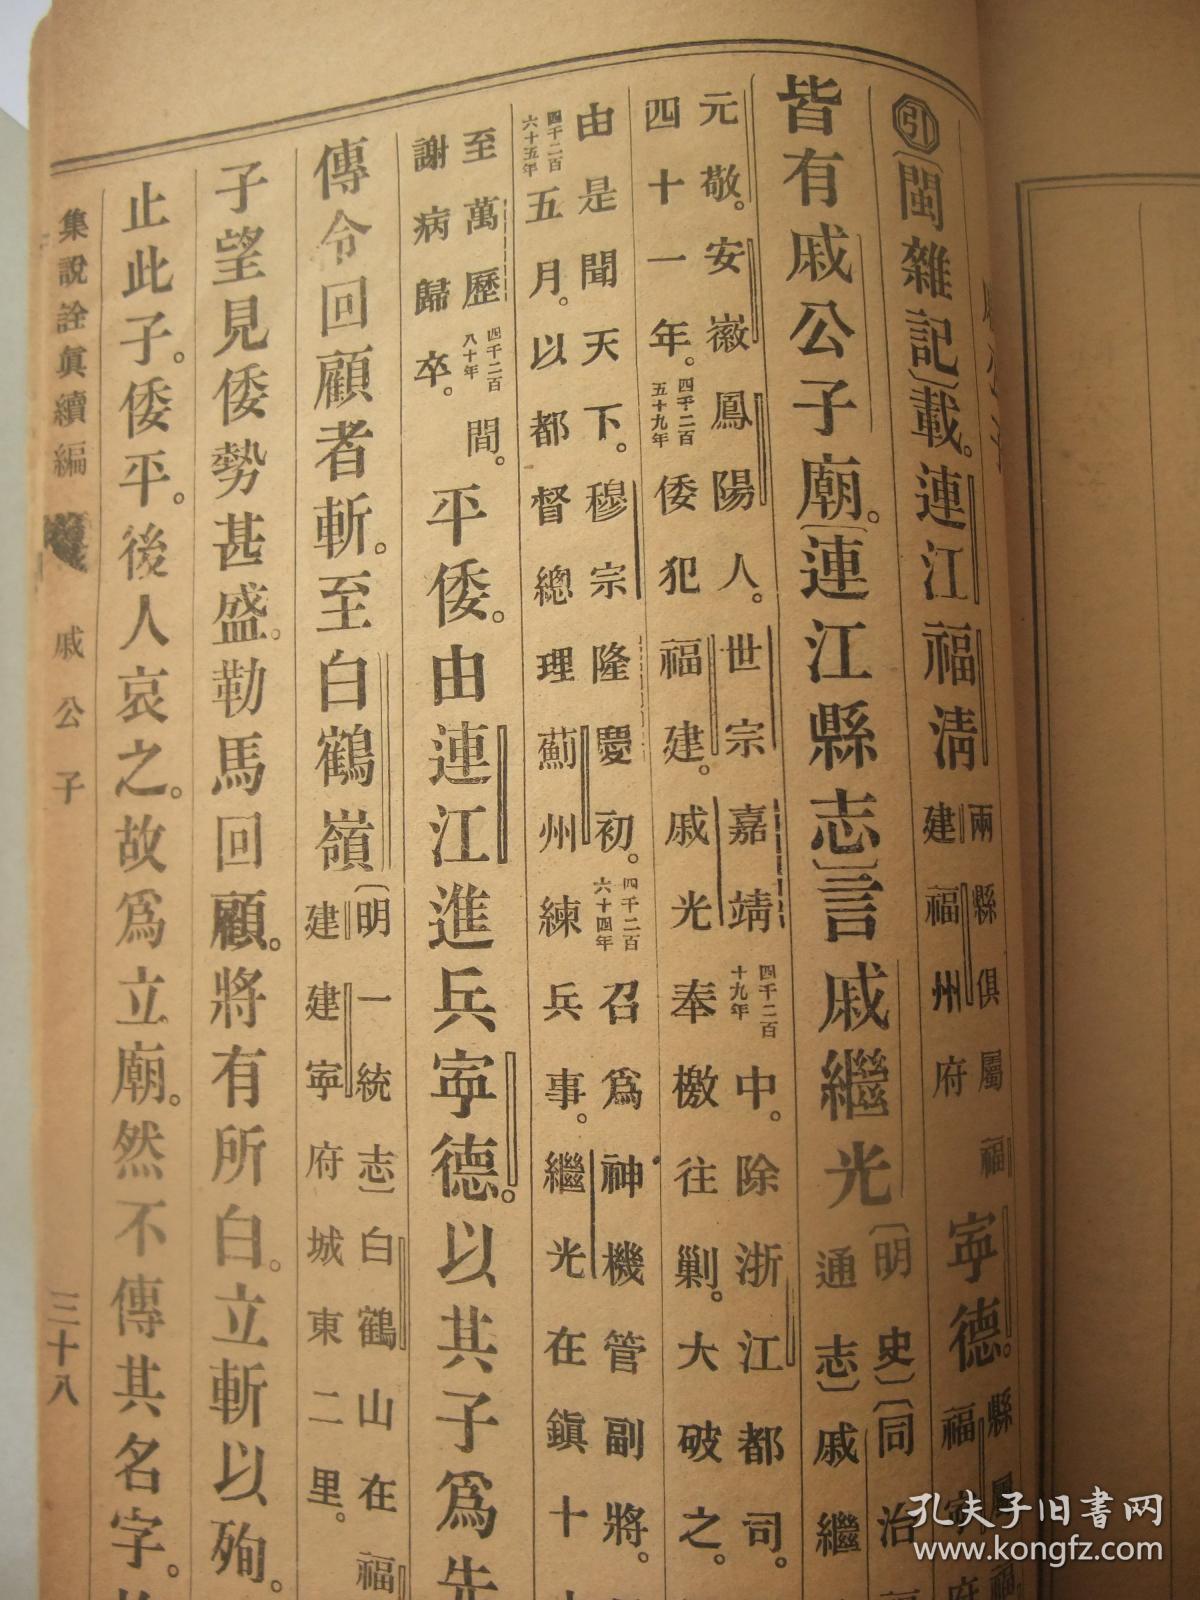 引[閩雜記]載。連江福清兩縣俱屬福建福州府寍德。縣
皆有戚公子廟。[連江縣志]言戚繼光[明史][同治通志]戚繼
元敬。安徽鳳陽人。世宗嘉靖四千二百十九年中。除浙江都司。
四十一年。四千二百五十九年倭犯福建。戚光奉檄往剿。大破之。
由是聞天下。穆宗隆慶初。四千二百六十四年召爲神機管副將。
四千二百六十五年五月。以都督總理薊州練兵事。繼光在鎮十
至萬歷四千二百八十年間。
謝病歸卒。
平倭。由連江進兵寍德。以其子爲先
傳令回顧者斬。至白鶴嶺[明一統志]白鶴山在福建建寍府城東二里。
子望見倭勢甚盛。勒馬回顧。將有所白。立斬以殉。
止此子。倭平。後人哀之。故爲立廟。然不傳其名字。
集說詮眞續編 戚公子 三十八
孔夫子旧书网
www.kongfz.com